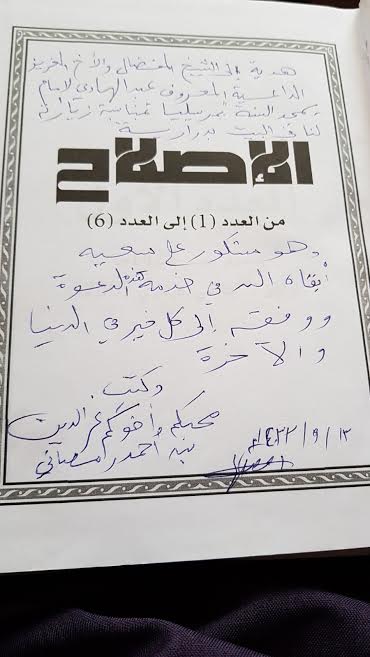 هدية إلى الشيخ المفضال والأخ العزيز
الداعية المعروف عبد الهادي لإمام
بمسجد السنة بمرسليا بمناسبة زيارته
لنا في البيت بدرارية
الإصلاح
من العدد (1) إلى العدد (6)
وهو مشكور على سعيه
أبقاه الله في خدمة هذه الدعوة
ووفقه إلى كل خير في الدنيا
والآخرة
وكتب.
محبكم وأخوكم عز الدين
بن أحمد رمضاني
١٢ / ٩ / ١٤٣٣